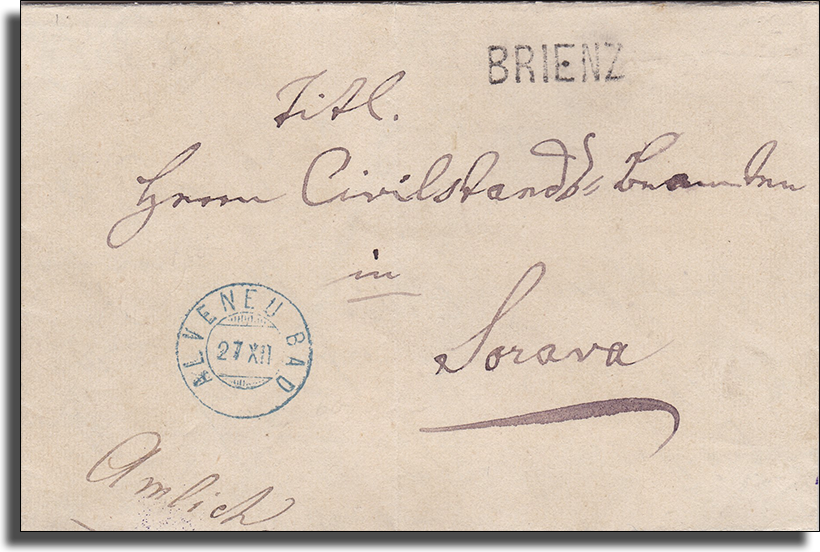 BRIENZ
Titl.
Herrn Civilstands-Beamten
in
Sorava
ALVENEU BAD
27 XII
Amlich